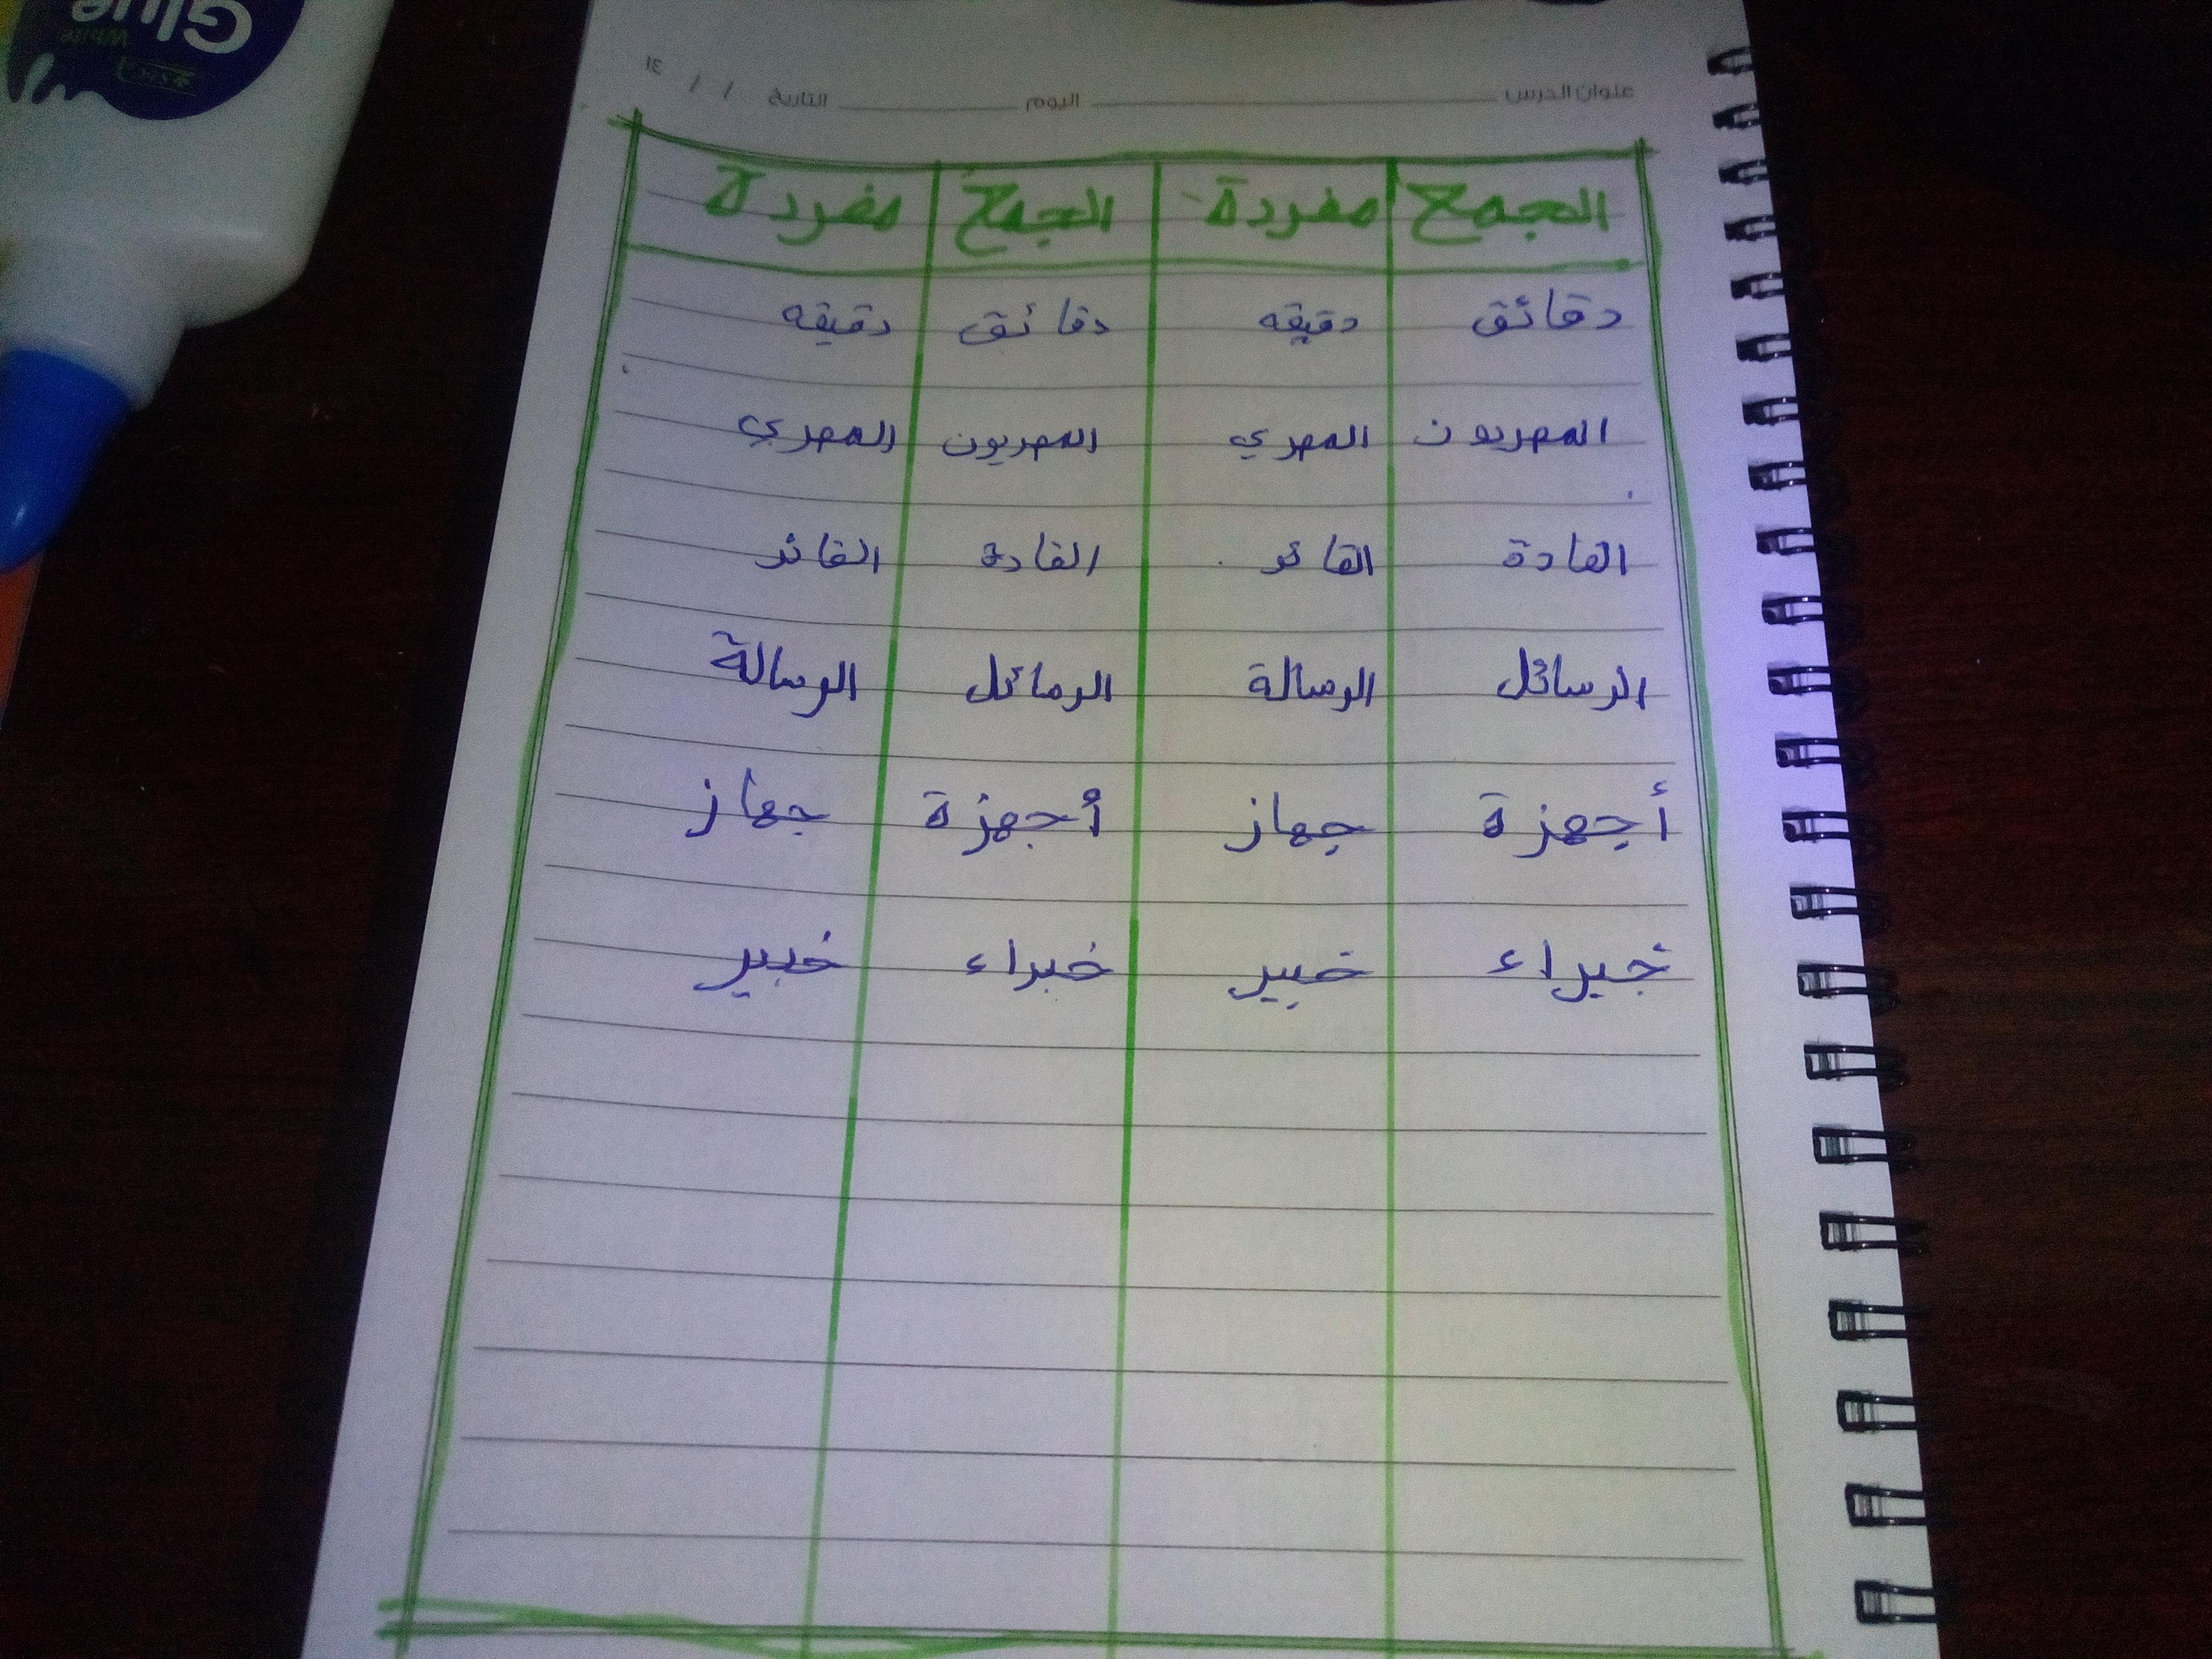 عنوان الدرس اليوم التاريخ / / ١٤
الجمع مفردة الجمع مفردة
دقائق دقيقه دقائق دقيقه
المصريون المصري المصريون المصري
القادة القائد القادة القائد
الرسائل الرسالة الرسائل الرسالة
أجهزة جهاز أجهزة جهاز
خبراء خبير خبراء خبير
Glue
White